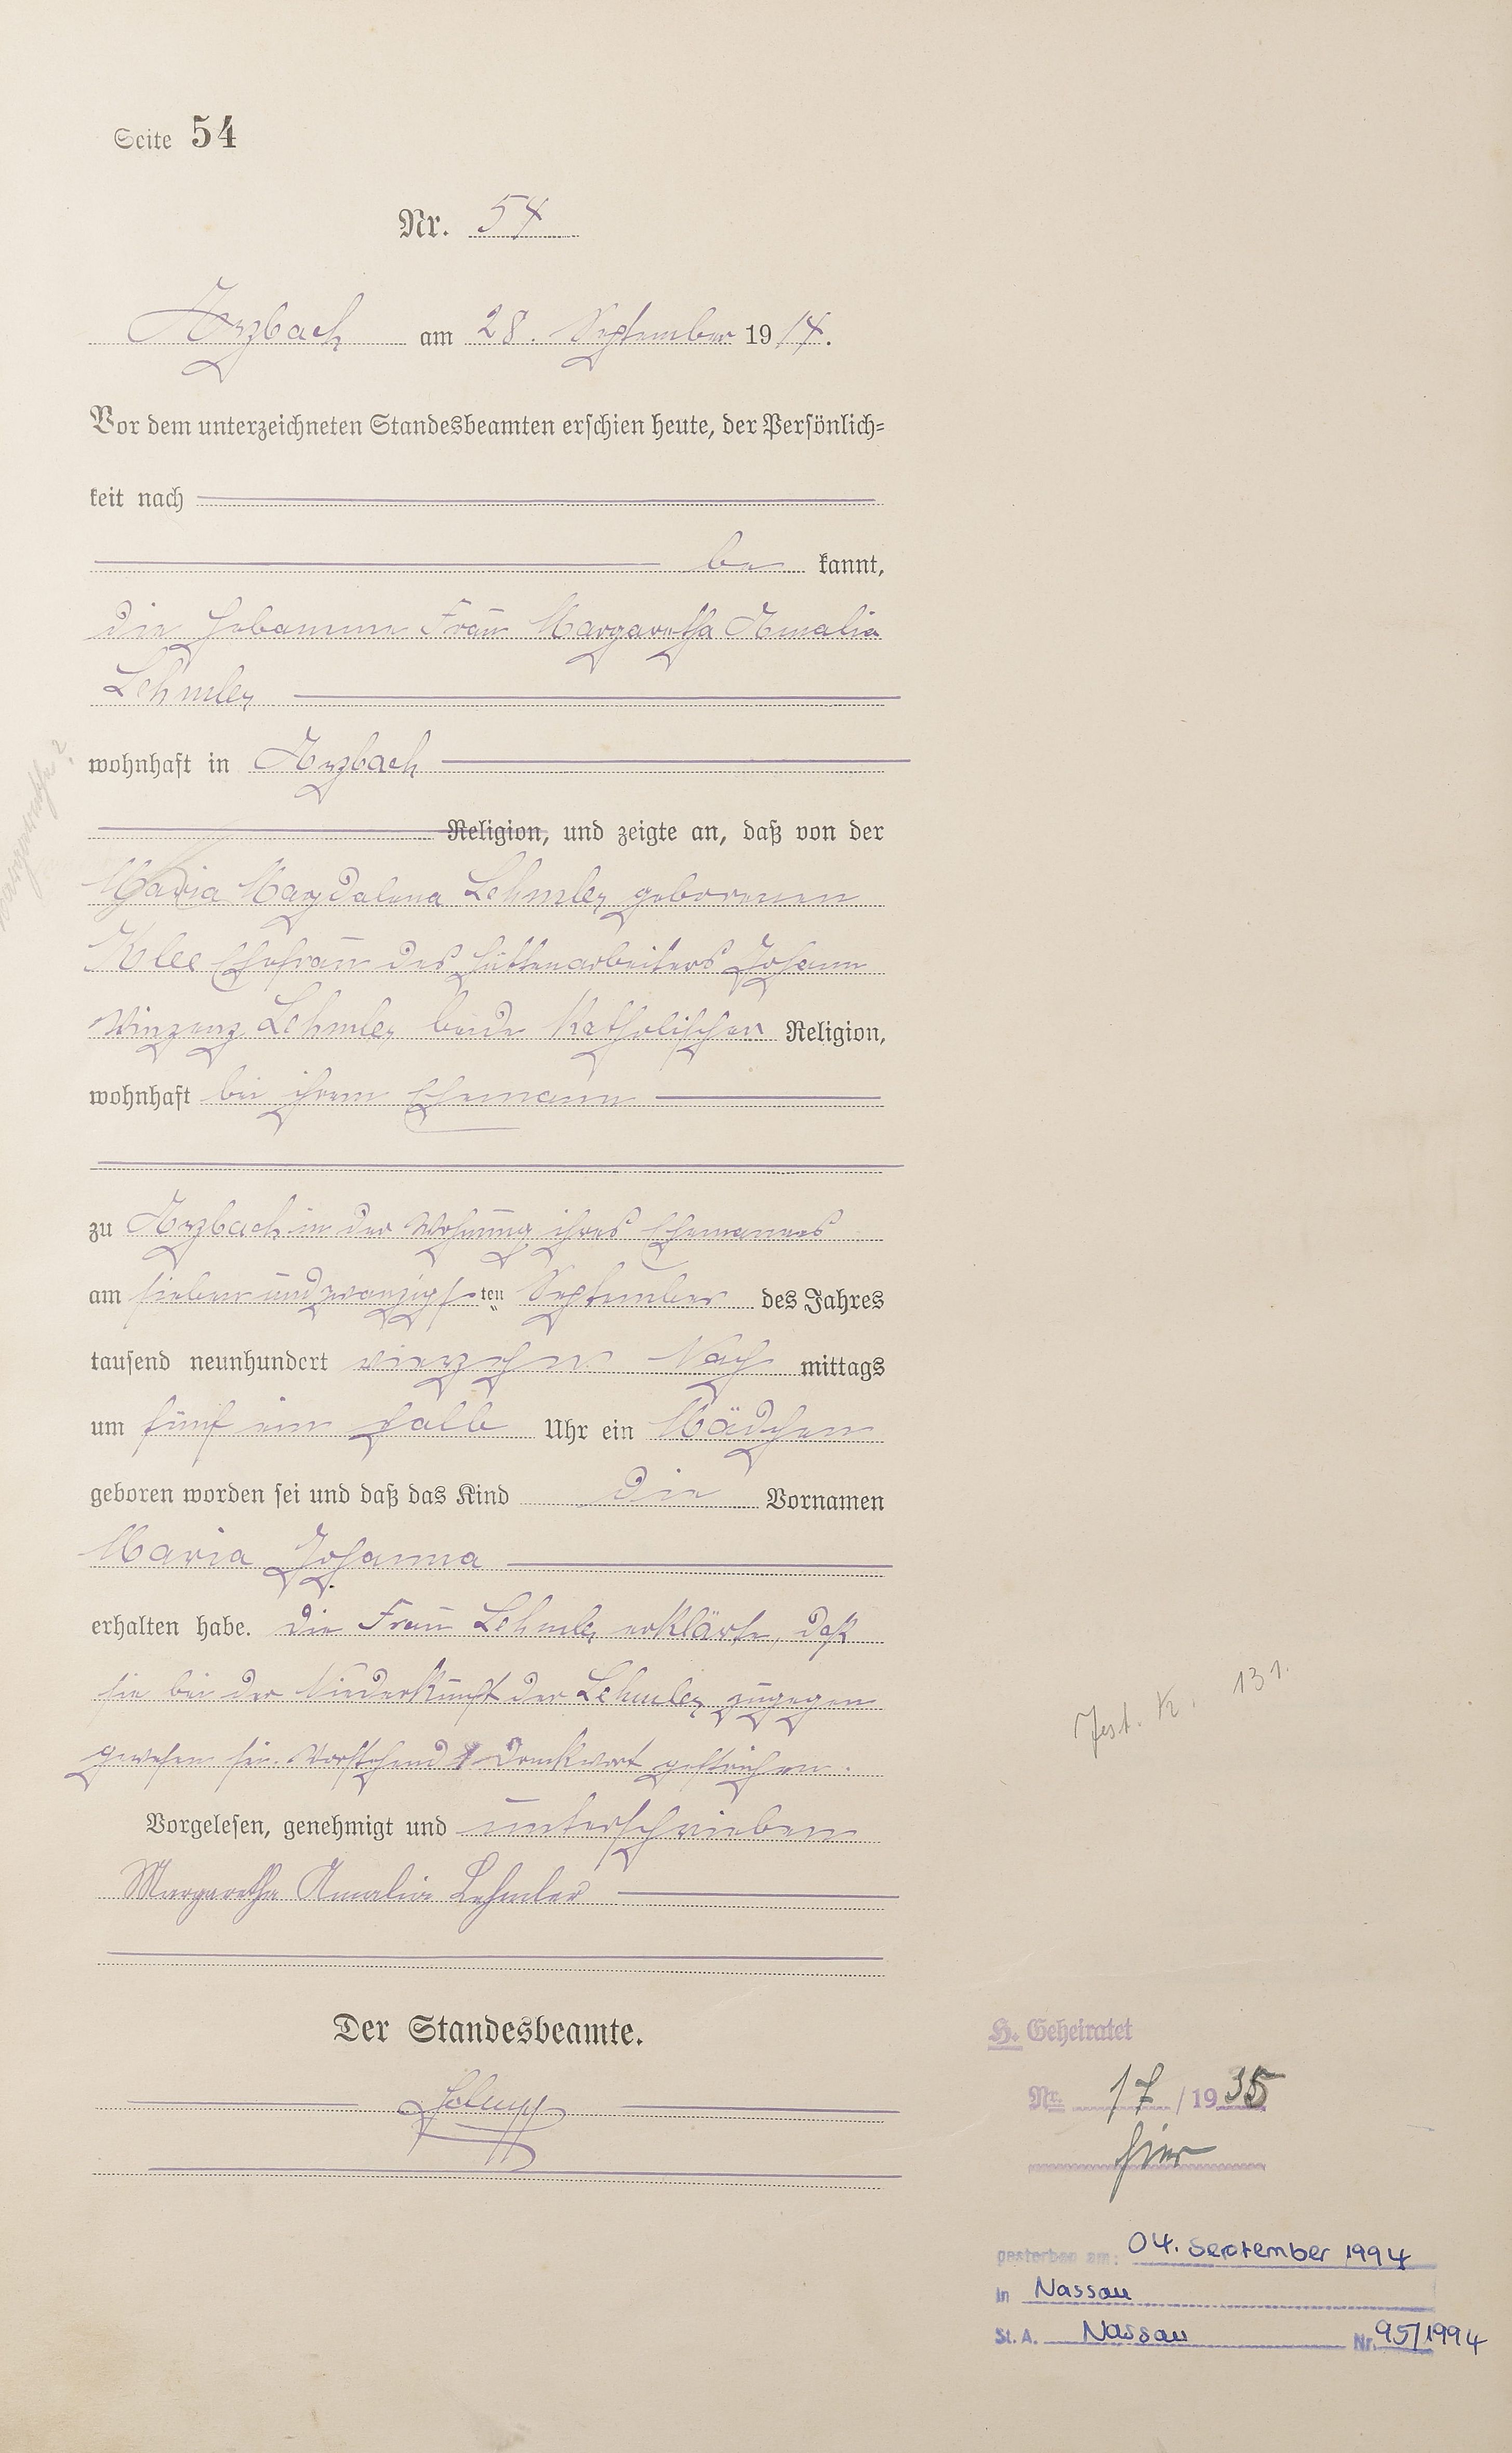 Seite 54
Nr. 54
Arzbach am 28. September 1914.
Vor dem unterzeichneten Standesbeamten erschien heute, der Persönlich=
keit nach
be kannt,
die Hebamme Frau Margaretha Amalia
Lehmler
wohnhaft in Arzbach
Religion, und zeigte an, daß von der
Maria Magdalena Lehmler geborenen
Klee Ehefrau des Hüttenarbeiters Johann
Winzenz Lehmler beide Katholischen Religion,
wohnhaft bei ihrem Ehemann
zu Arzbach in der Wohnung ihres Ehemannes
am siebenundzwanzigsten September des Jahres
tausend neunhundert vierzehn Nach mittags
um fünf ein halb Uhr ein Mädchen
geboren worden sei und daß das Kind die Vornamen
Maria Johanna
erhalten habe. die Frau Lehmler erklärte, daß
sie bei der Niederkunft der Lehmler zugegen
gewesen sei. Vorstehend 1 Druckwort gestrichen.
Vorgelesen, genehmigt und unterschrieben
Margaretha Amalia Lehmler
Der Standesbeamte.
H. Geheiratet
Nr. 17 / 1935
hier
gestorben am: 04. September 1994
in Nassau
St. A. Nassau Nr. 95/1994